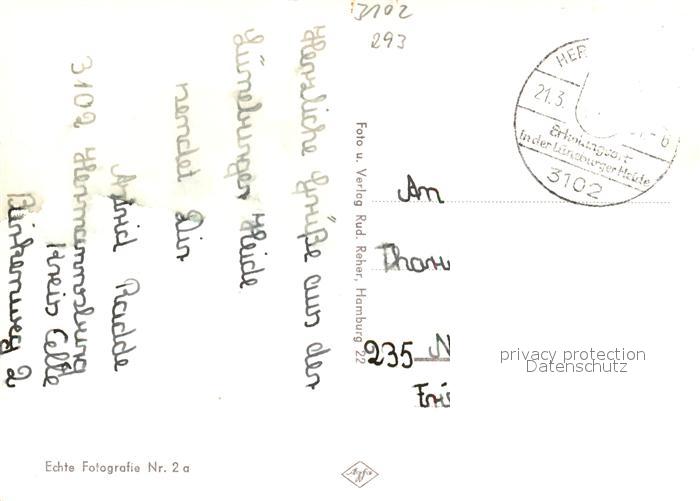 3102
293
Herzliche Grüße aus der
Lüneburger Heide
sendet Dir
Astrid Radde
3102 Hermannsburg
Kreis Celle
Birkenweg 2
Foto u. Verlag Rud. Reher, Hamburg 22
HER
21.3.
Erholungsort
in der Lüneburger Heide
3102
An
235 N
privacy protection
Datenschutz
Echte Fotografie Nr. 2 a
Agfa